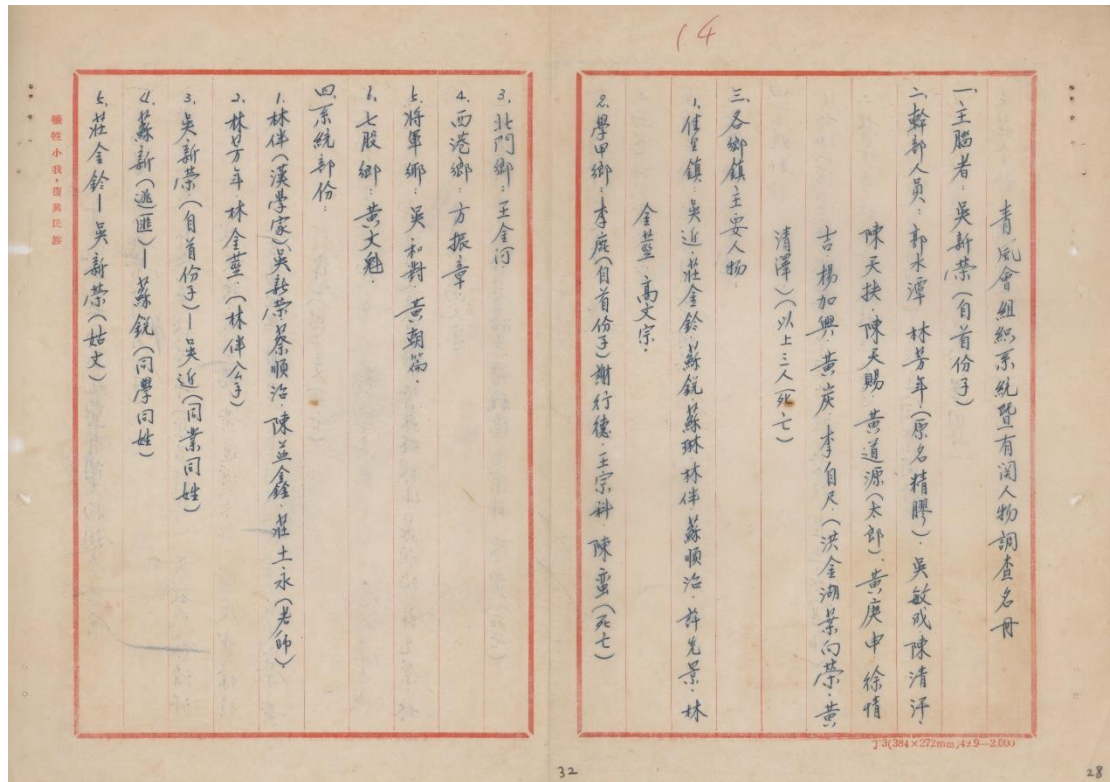 14
青風會組織系統暨有関人物調查名冊
一、主腦者：吳新榮（自首份子）
二、幹部人員：郭水潭．林芳年（原名精膠）．吳敏成陳清汗．
陳天扶．陳天賜．黃道源（太郎）．黃庚申徐情
吉．楊加興．黃炭．李自尺．（洪金湖葉向榮．黃
清澤）（以上三人死亡）
三、各鄉鎮主要人物：
1.佳里鎮：吳近．莊金鈴．蘇銳．蘇琳．林伴．蘇順治．許先景．林
金莖．高文宗．
2.學甲鄉：李鹿（自首份子）謝行德．王宗科．陳蛮（死亡）
3.北門鄉：王金河．
4.西港鄉：方振章
5.將軍鄉：吳和對．黃朝篇．
6.七股鄉：黃大魁．
四、系統部份：
1.林伴（漢學家）吳新榮．蔡順治．陳益鑫．莊土永（老師）
2.林芳年．林金莖．（林伴公子）
3.吳新榮（自首份子）—吳近（同業同姓）
4.蘇新（逃匪）—蘇銳（同學同姓）
5.莊金鈴—吳新榮（姑丈）
犧牲小我，復興民族
J 3(384×272mm)49.9—2.000
32
28